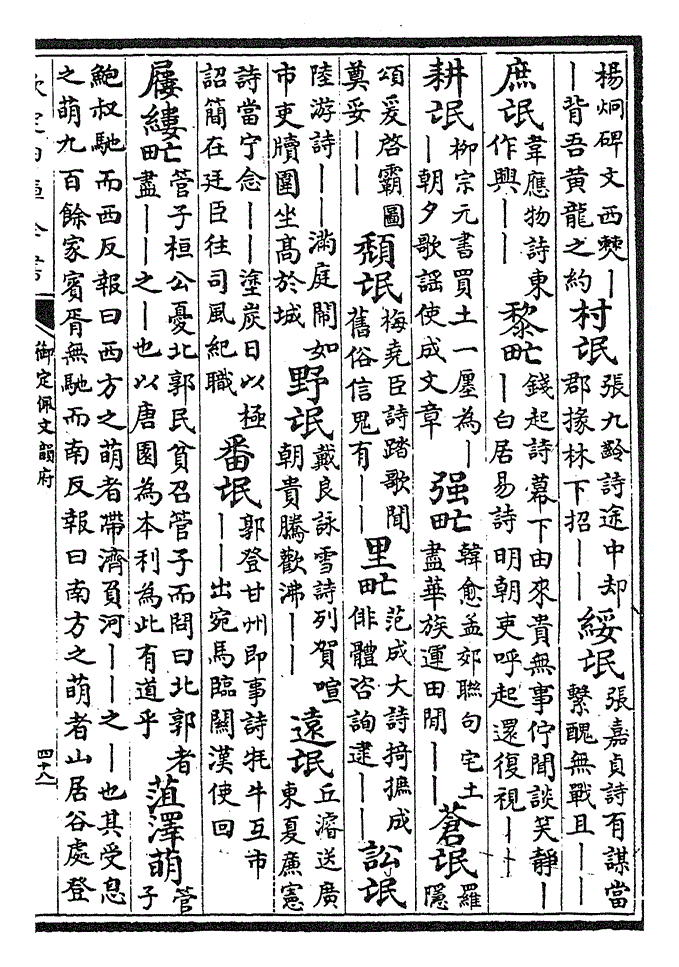 楊炯碑文西僰丨丨背吾黄龍之約村氓張九齡詩途中却郡掾林下招丨丨綏氓張嘉貞詩有謀當繫醜無戰且丨丨
庶氓韋應物詩東作興丨丨黎甿錢起詩幕下由來貴無事佇聞談笑靜丨丨白居易詩明朝吏呼起還復視丨丨
耕氓柳宗元書買土一廛為丨丨朝夕歌謡使成文章强甿韓愈孟郊聯句宅土盡華族運田間丨丨蒼氓羅隱
頌爰啓霸圖奠妥丨丨頽氓梅堯臣詩踏歌聞舊俗信鬼有丨丨里甿范成大詩掎摭成俳體咨詢逮丨丨訟氓
陸游詩丨丨滿庭閙如市吏牘圍坐髙於城野氓戴良詠雪詩列賀喧朝貴騰歡沸丨丨遠氓丘濬送廣東夏廉憲
詩當宁念丨丨塗炭日以極詔簡在廷臣往司風紀職番氓郭登甘州即事詩牦牛互市丨丨出宛馬臨關漢使回
屨縷甿管子桓公憂北郭民貧召管子而問曰北郭者盡丨丨之丨也以唐園為本利為此有道乎菹澤萌管子
鮑叔馳而西反報曰西方之萌者帶濟負河丨丨之丨也其受息之萌九百餘家賓胥無馳而南反報曰南方之萌者山居谷處登
欽定四庫全書
御定佩文韻府
四十八